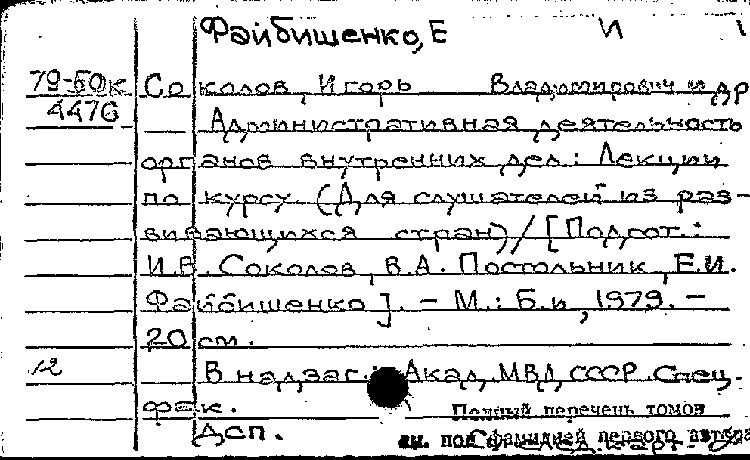 Файбишенко, Е И
79-50к Соколов, Игорь Владимирович и др
4476 Административная деятельность
органов внутренних дел: Лекции
по курсу (Для слушателей из раз-
вивающихся стран) / [Подгот.:
И.В. Соколов, В.А. Постольник, Е.И.
Файбишенко]. – М.: Б.и, 1979. –
20 см.
12 В надзаг.: Акад. МВД СССР. Спец.
фак.
Полный перечень томов
ДСП.
см. под фамилией первого автора